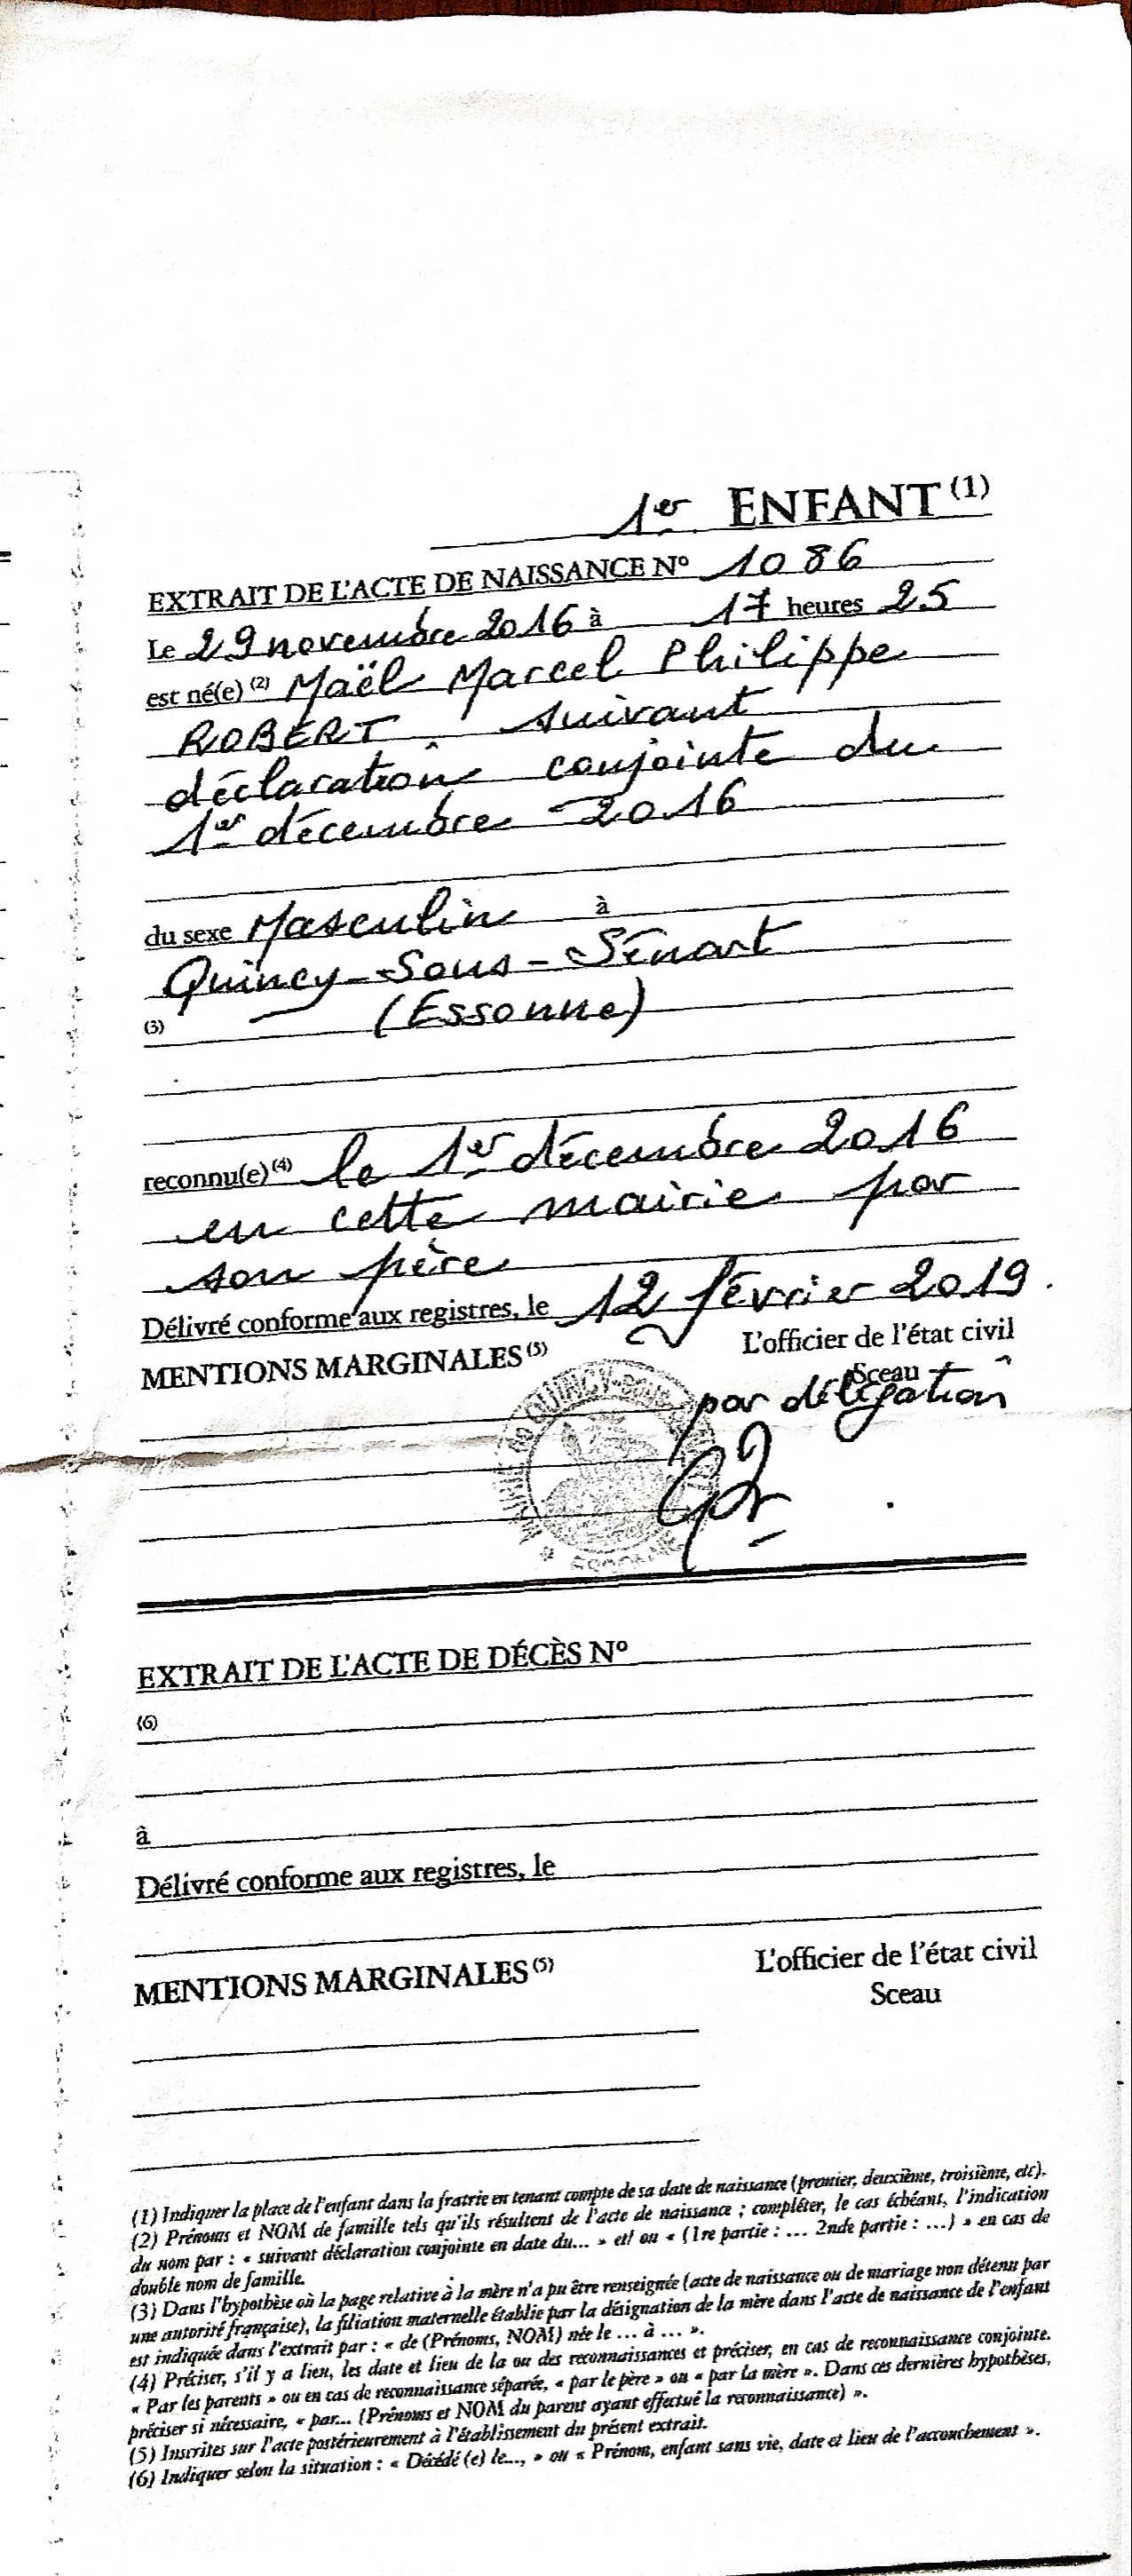 1er ENFANT (1)
EXTRAIT DE L'ACTE DE NAISSANCE N° 1086
Le 29 novembre 2016 à 17 heures 25
est né(e) (2) Maël Marcel Philippe
ROBERT suivant
déclaration conjointe du
1er décembre 2016
du sexe Masculin à
Quincy-Sous-Sénart
(3) (Essonne)
reconnu(e) (4) le 1er décembre 2016
en cette mairie par
son père
Délivré conforme aux registres, le 12 février 2019.
MENTIONS MARGINALES (5) L'officier de l'état civil
Sceau
par délégation
MAIRIE de QUINCY-SOUS-
* ESSONNE
EXTRAIT DE L'ACTE DE DÉCÈS N°
(6)
à
Délivré conforme aux registres, le
MENTIONS MARGINALES (5) L'officier de l'état civil
Sceau
(1) Indiquer la place de l'enfant dans la fratrie en tenant compte de sa date de naissance (premier, deuxième, troisième, etc).
(2) Prénoms et NOM de famille tels qu'ils résultent de l'acte de naissance ; compléter, le cas échéant, l'indication
du nom par : « suivant déclaration conjointe en date du... » et/ ou « (1re partie : ... 2nde partie : ...) » en cas de
double nom de famille.
(3) Dans l'hypothèse où la page relative à la mère n'a pu être renseignée (acte de naissance ou de mariage non détenu par
une autorité française), la filiation maternelle établie par la désignation de la mère dans l'acte de naissance de l'enfant
est indiquée dans l'extrait par : « de (Prénoms, NOM) née le ... à ... ».
(4) Préciser, s'il y a lieu, les date et lieu de la ou des reconnaissances et préciser, en cas de reconnaissance conjointe.
« Par les parents » ou en cas de reconnaissance séparée, « par le père » ou « par la mère ». Dans ces dernières hypothèses,
préciser si nécessaire, « par... (Prénoms et NOM du parent ayant effectué la reconnaissance) ».
(5) Inscrites sur l'acte postérieurement à l'établissement du présent extrait.
(6) Indiquer selon la situation : « Décédé (e) le..., » ou « Prénom, enfant sans vie, date et lieu de l'accouchement ».